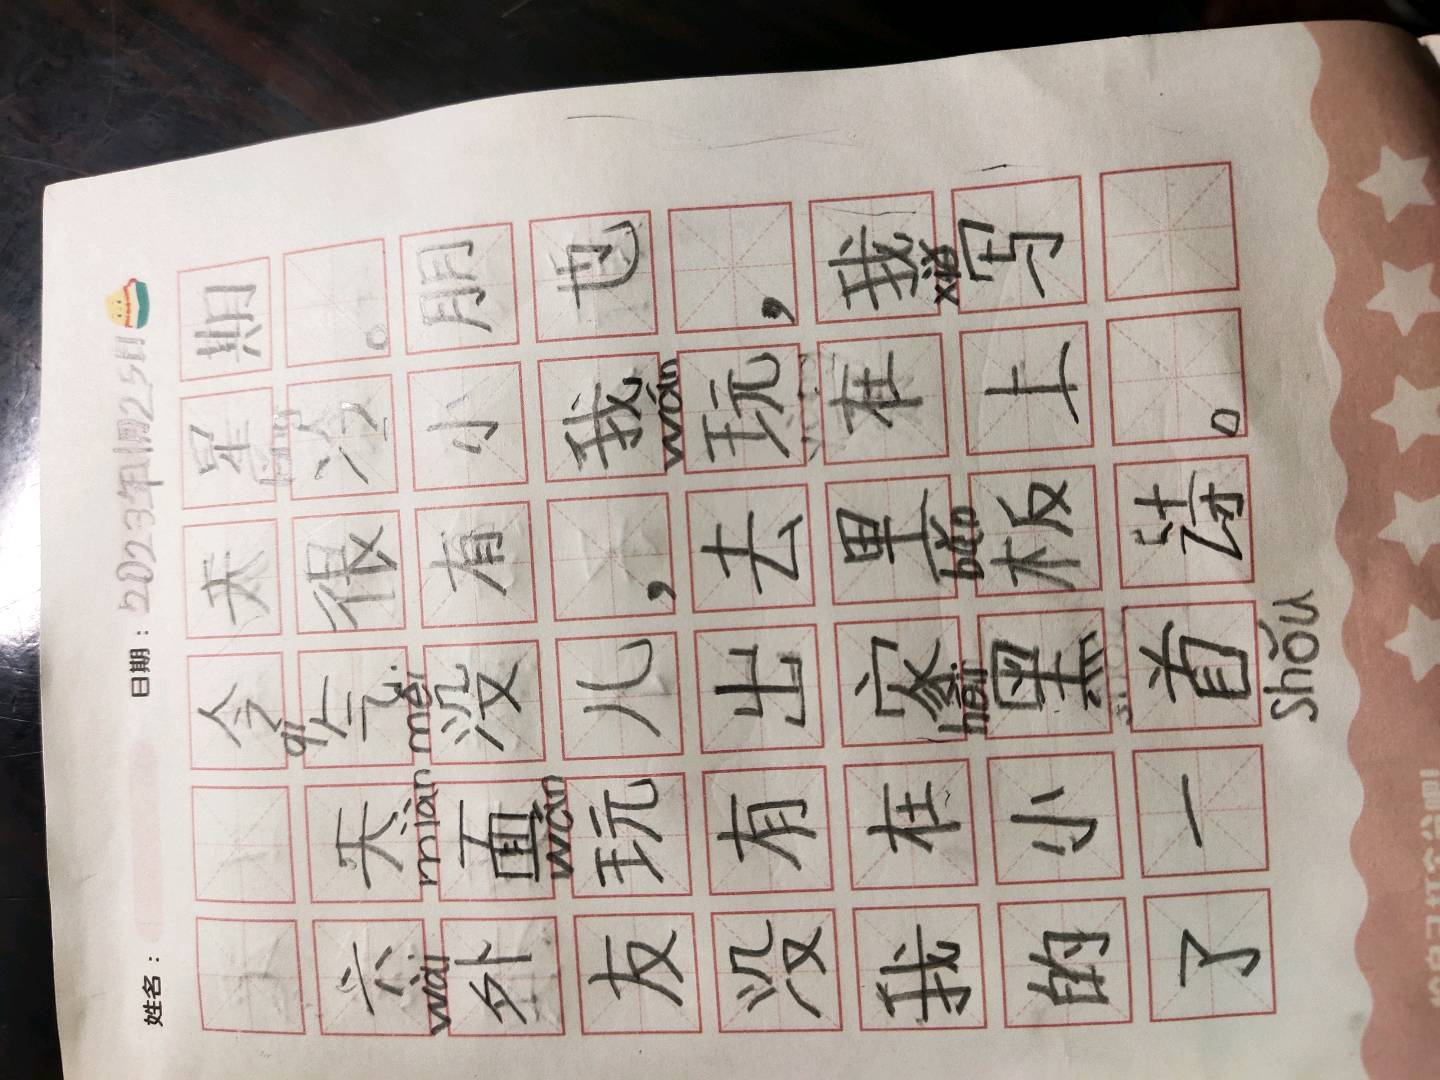 姓名： 日期：2023年1月25日
今天星期
qì
六天气很冷。
wài miàn méi
外面没有小朋
wán
友玩儿，我也
wán
没有出去玩，
我在家里在我
hēi bǎn xiě
的小黑板上写
了一首诗。
shǒu